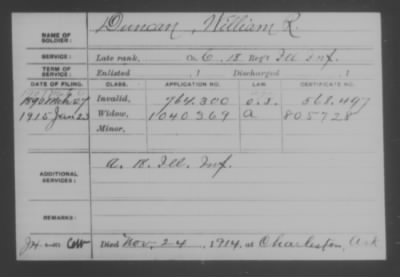 NAME OF SOLDIER: Duncan, William R.
SERVICE: Late rank, Co. G, 18 Reg't Ill Inf.
TERM OF SERVICE: Enlisted , 1 Discharged , 1
DATE OF FILING. CLASS. APPLICATION NO. LAW. CERTIFICATE NO.
1890 Mch 27 Invalid, 764.300 568.497
1915 Jan 23 Widow, 1040369 a 805728
Minor,
ADDITIONAL SERVICES: a. 18. Ill. Inf.
REMARKS:
Died Nov. 24, 1914, at Charleston, Ark